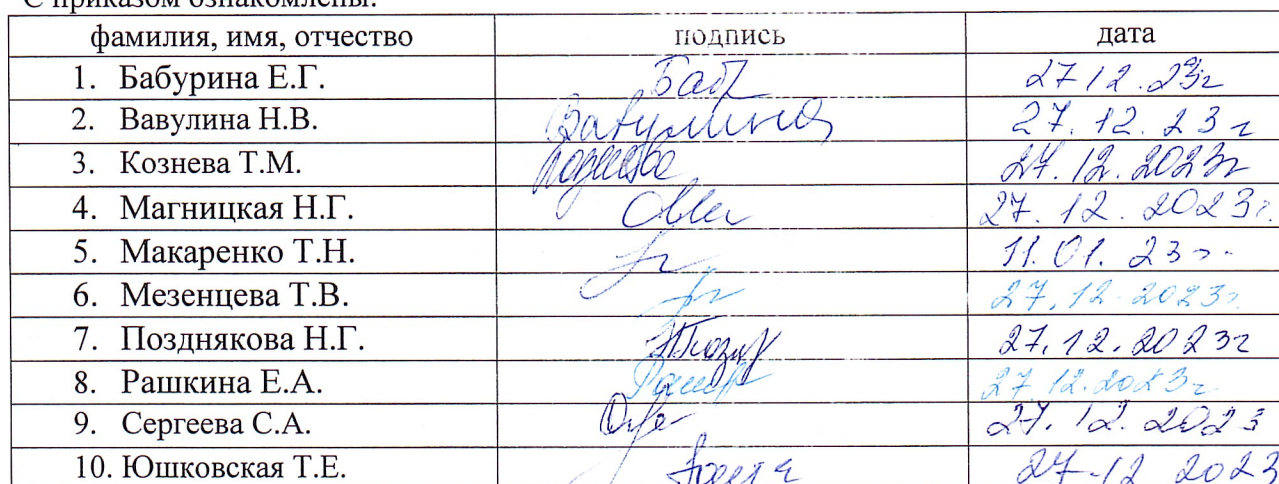 С приказом ознакомлены:
фамилия, имя, отчество подпись дата
1. Бабурина Е.Г. Баб 27 12.23г
2. Вавулина Н.В. Вавулина 27.12.23г
3. Кознева Т.М. 27.12.2023г
4. Магницкая Н.Г. 27.12.2023г.
5. Макаренко Т.Н. 11.01.23г.
6. Мезенцева Т.В. 27.12.2023г
7. Позднякова Н.Г. 27.12.2023г
8. Рашкина Е.А. 27.12.2023г
9. Сергеева С.А. 27.12.2023
10. Юшковская Т.Е. 27.12 2023